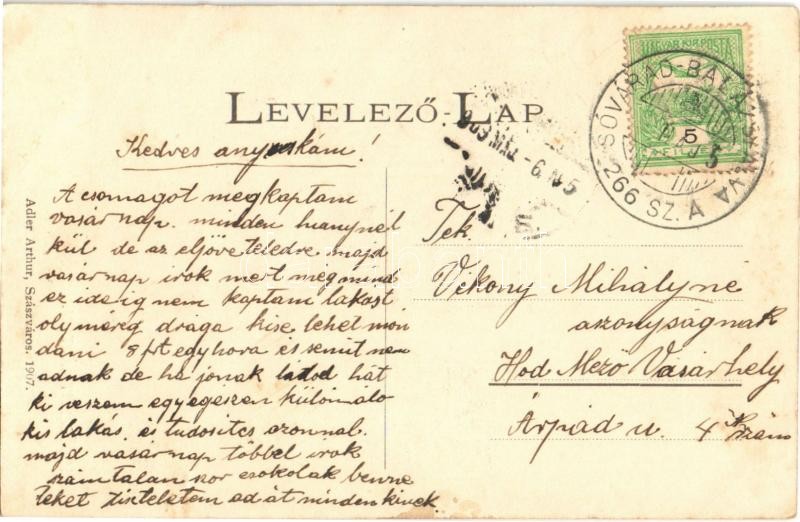 LEVELEZŐ-LAP
MAGYAR KIR. POSTA
5
SÓVÁRAD-BALA
266 SZ. A
903 MÁJ. -6. N 5
Kedves anyuskám!
A csomagot megkaptam
vasárnap. minden hianynél
kül de az eljöveteledre majd
vasarnap irok mert meg mind
ez ideig nem kaptam lakást
oly méreg drága kise lehet mon
dani 8 frt egy hora és semit nem
adnak de ha jonak latod hát
ki veszem egy egeszen külömalo
kis lakás és tudosits azonnal.
majd vasarnap többel irok
szám talan szor csokolak benne
teket tiszteletem ad át minden kinek.
Tek.
Vékony Mihályné
aszonyságnak
Hod Mező Vasárhely
Árpád u. 4 szám
Adler Arthur, Szászváros. 1907.